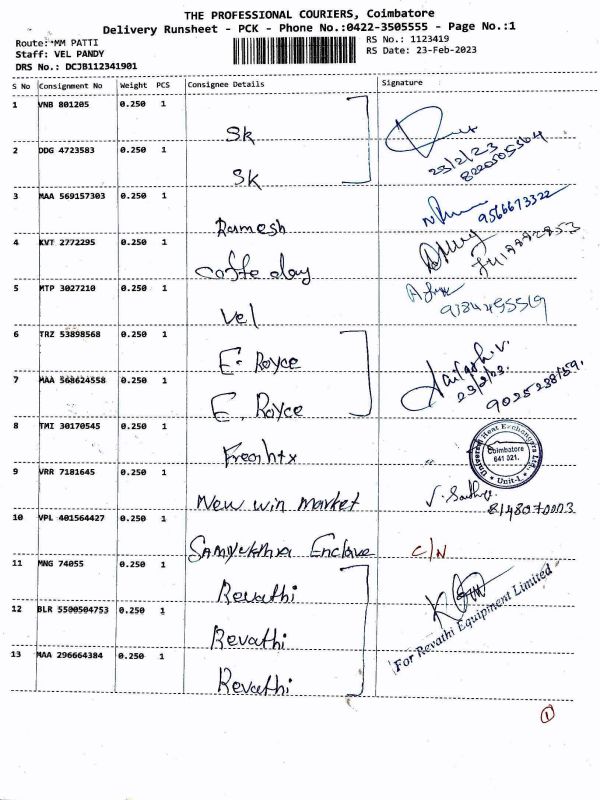 THE PROFESSIONAL COURIERS, Coimbatore
Delivery Runsheet - PCK - Phone No.:0422-3505555 - Page No.:1
Route: MM PATTI RS No.: 1123419
Staff: VEL PANDY RS Date: 23-Feb-2023
DRS No.: DCJB112341901
S No Consignment No Weight PCS Consignee Details Signature
1 VNB 801205 0.250 1
Sk
23/2/23
2 DDG 4723583 0.250 1
Sk
3 MAA 569157303 0.250 1
Ramesh
9566673322
4 KVT 2772295 0.250 1
Coffe day
5 MTP 3027210 0.250 1
Vel
6 TRZ 53898568 0.250 1
E. Royce
23/2/23.
7 MAA 568624558 0.250 1
E. Royce
8 TMI 30170545 0.250 1
Universal Heat Exchangers Ltd.,
Coimbatore
641 021.
Unit-I
9 VRR 7181645 0.250 1
New win market
8148070003
10 VPL 401564427 0.250 1
Samyukthra Enclave C/N
11 MNG 74055 0.250 1
Revathi
12 BLR 5500504753 0.250 1
Revathi
For Revathi Equipment Limited
13 MAA 296664384 0.250 1
Revathi
1